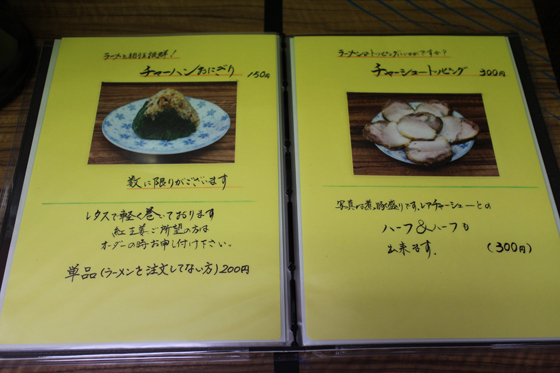 ラーメンと相性抜群!
チャーハンおにぎり 150円
数に限りがございます
レタスで軽く巻いております
紅生姜ご所望の方は
オーダーの時お申し付け下さい。
単品(ラーメンを注文してない方)200円
ラーメンのトッピングにいかがですか?
チャーシュートッピング 300円
写真は煮豚盛りです。レアチャーシューとの
ハーフ&ハーフも
出来ます。 (300円)